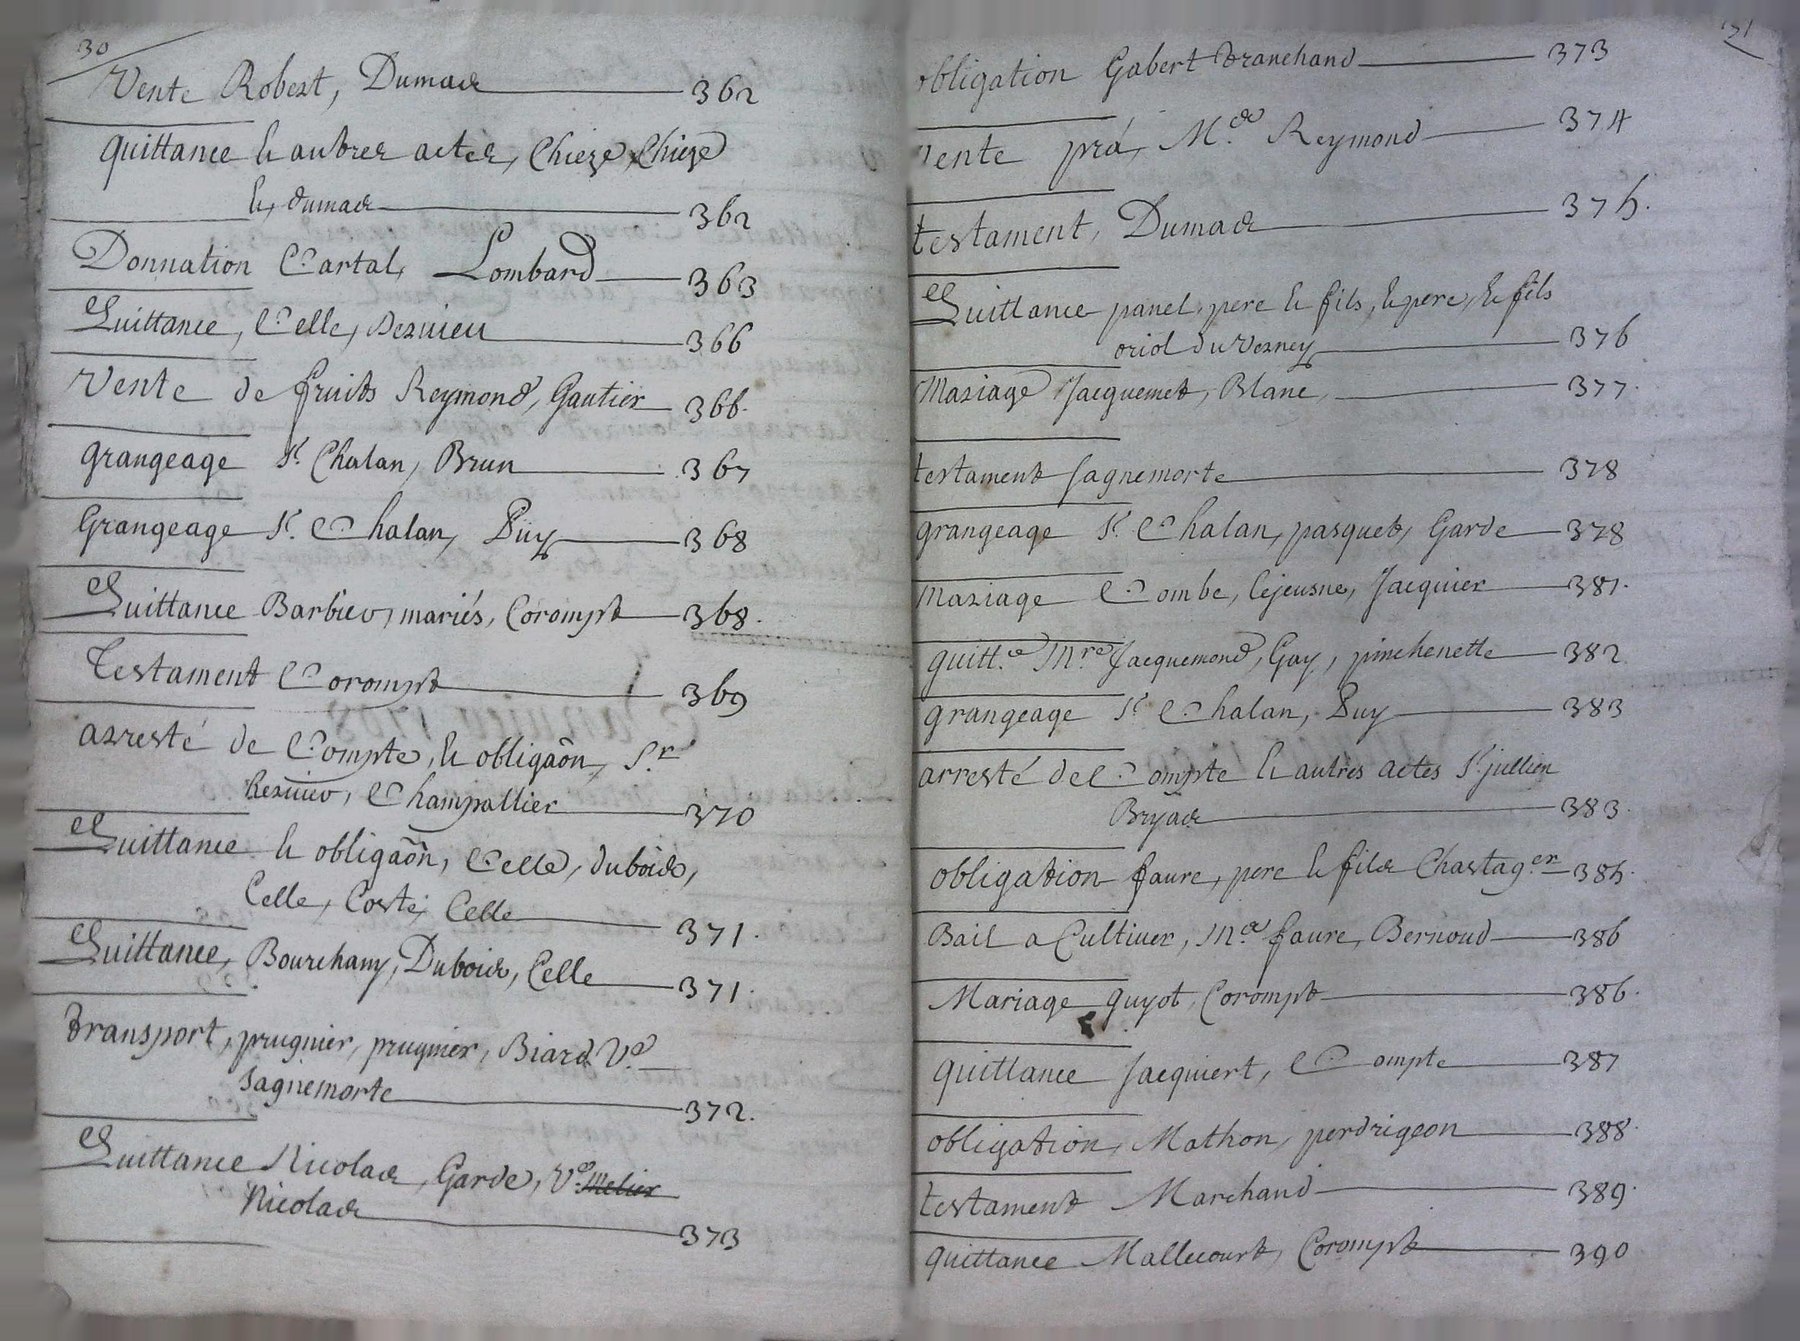 30
Vente Robert, Dumas 362
quittance & autres actes, Chieze, Chieze
&, dumas 362
Donnation Cartal, Lombard 363
Quittance, Celle, Rezuieu 366
Vente de fruits Reymond, Gautier 366.
grangeage Sr. Chalan, Brun 367
Grangeage Sr. Chalan, Puy 368
Quittance Barbier, mariés, Corompt 368.
Testament Corompt 369
arresté de Compte, & obligaôn, Sr.
Rezuieu, Champallier 370
Quittance & obligaôn, Celle, dubois,
Celle, Coste, Celle 371.
Quittance, Bourchany, Dubois, Celle 371.
transport, prugnier, prugnier, Biard Ve.
sagnemorte 372.
Quittance Nicolas, Garde, Ve. Melier
Nicolas 373
31
obligation Gabert tranchand 373
Vente pra, Me. Reymond 374
testament, Dumas 375.
Quittance panel, pere & fils, & pere, & fils
oriol du Vezney 376
Mariage Jacquemet, Blanc, 377.
testament sagnemorte 378
grangeage Sr. Chalan, pasquet, Garde 378
Mariage Combe, lejeusne, Jacquier 381.
quitt.ce Mre. Jacquemond, Gay, pinchenette 382
grangeage Sr. Chalan, Puy 383
arresté de Compte & autres actes St jullien
Bryas 383.
obligation faure, pere & fils Chastag.er 385.
Bail a Cultiuer, Me. faure, Bernoud 386
Mariage guyot, Corompt 386.
quittance Jacquiert, Compte 387
obligation, Mathon, perdrigeon 388.
testament Marchand 389.
quittance Mallecourt, Corompt 390